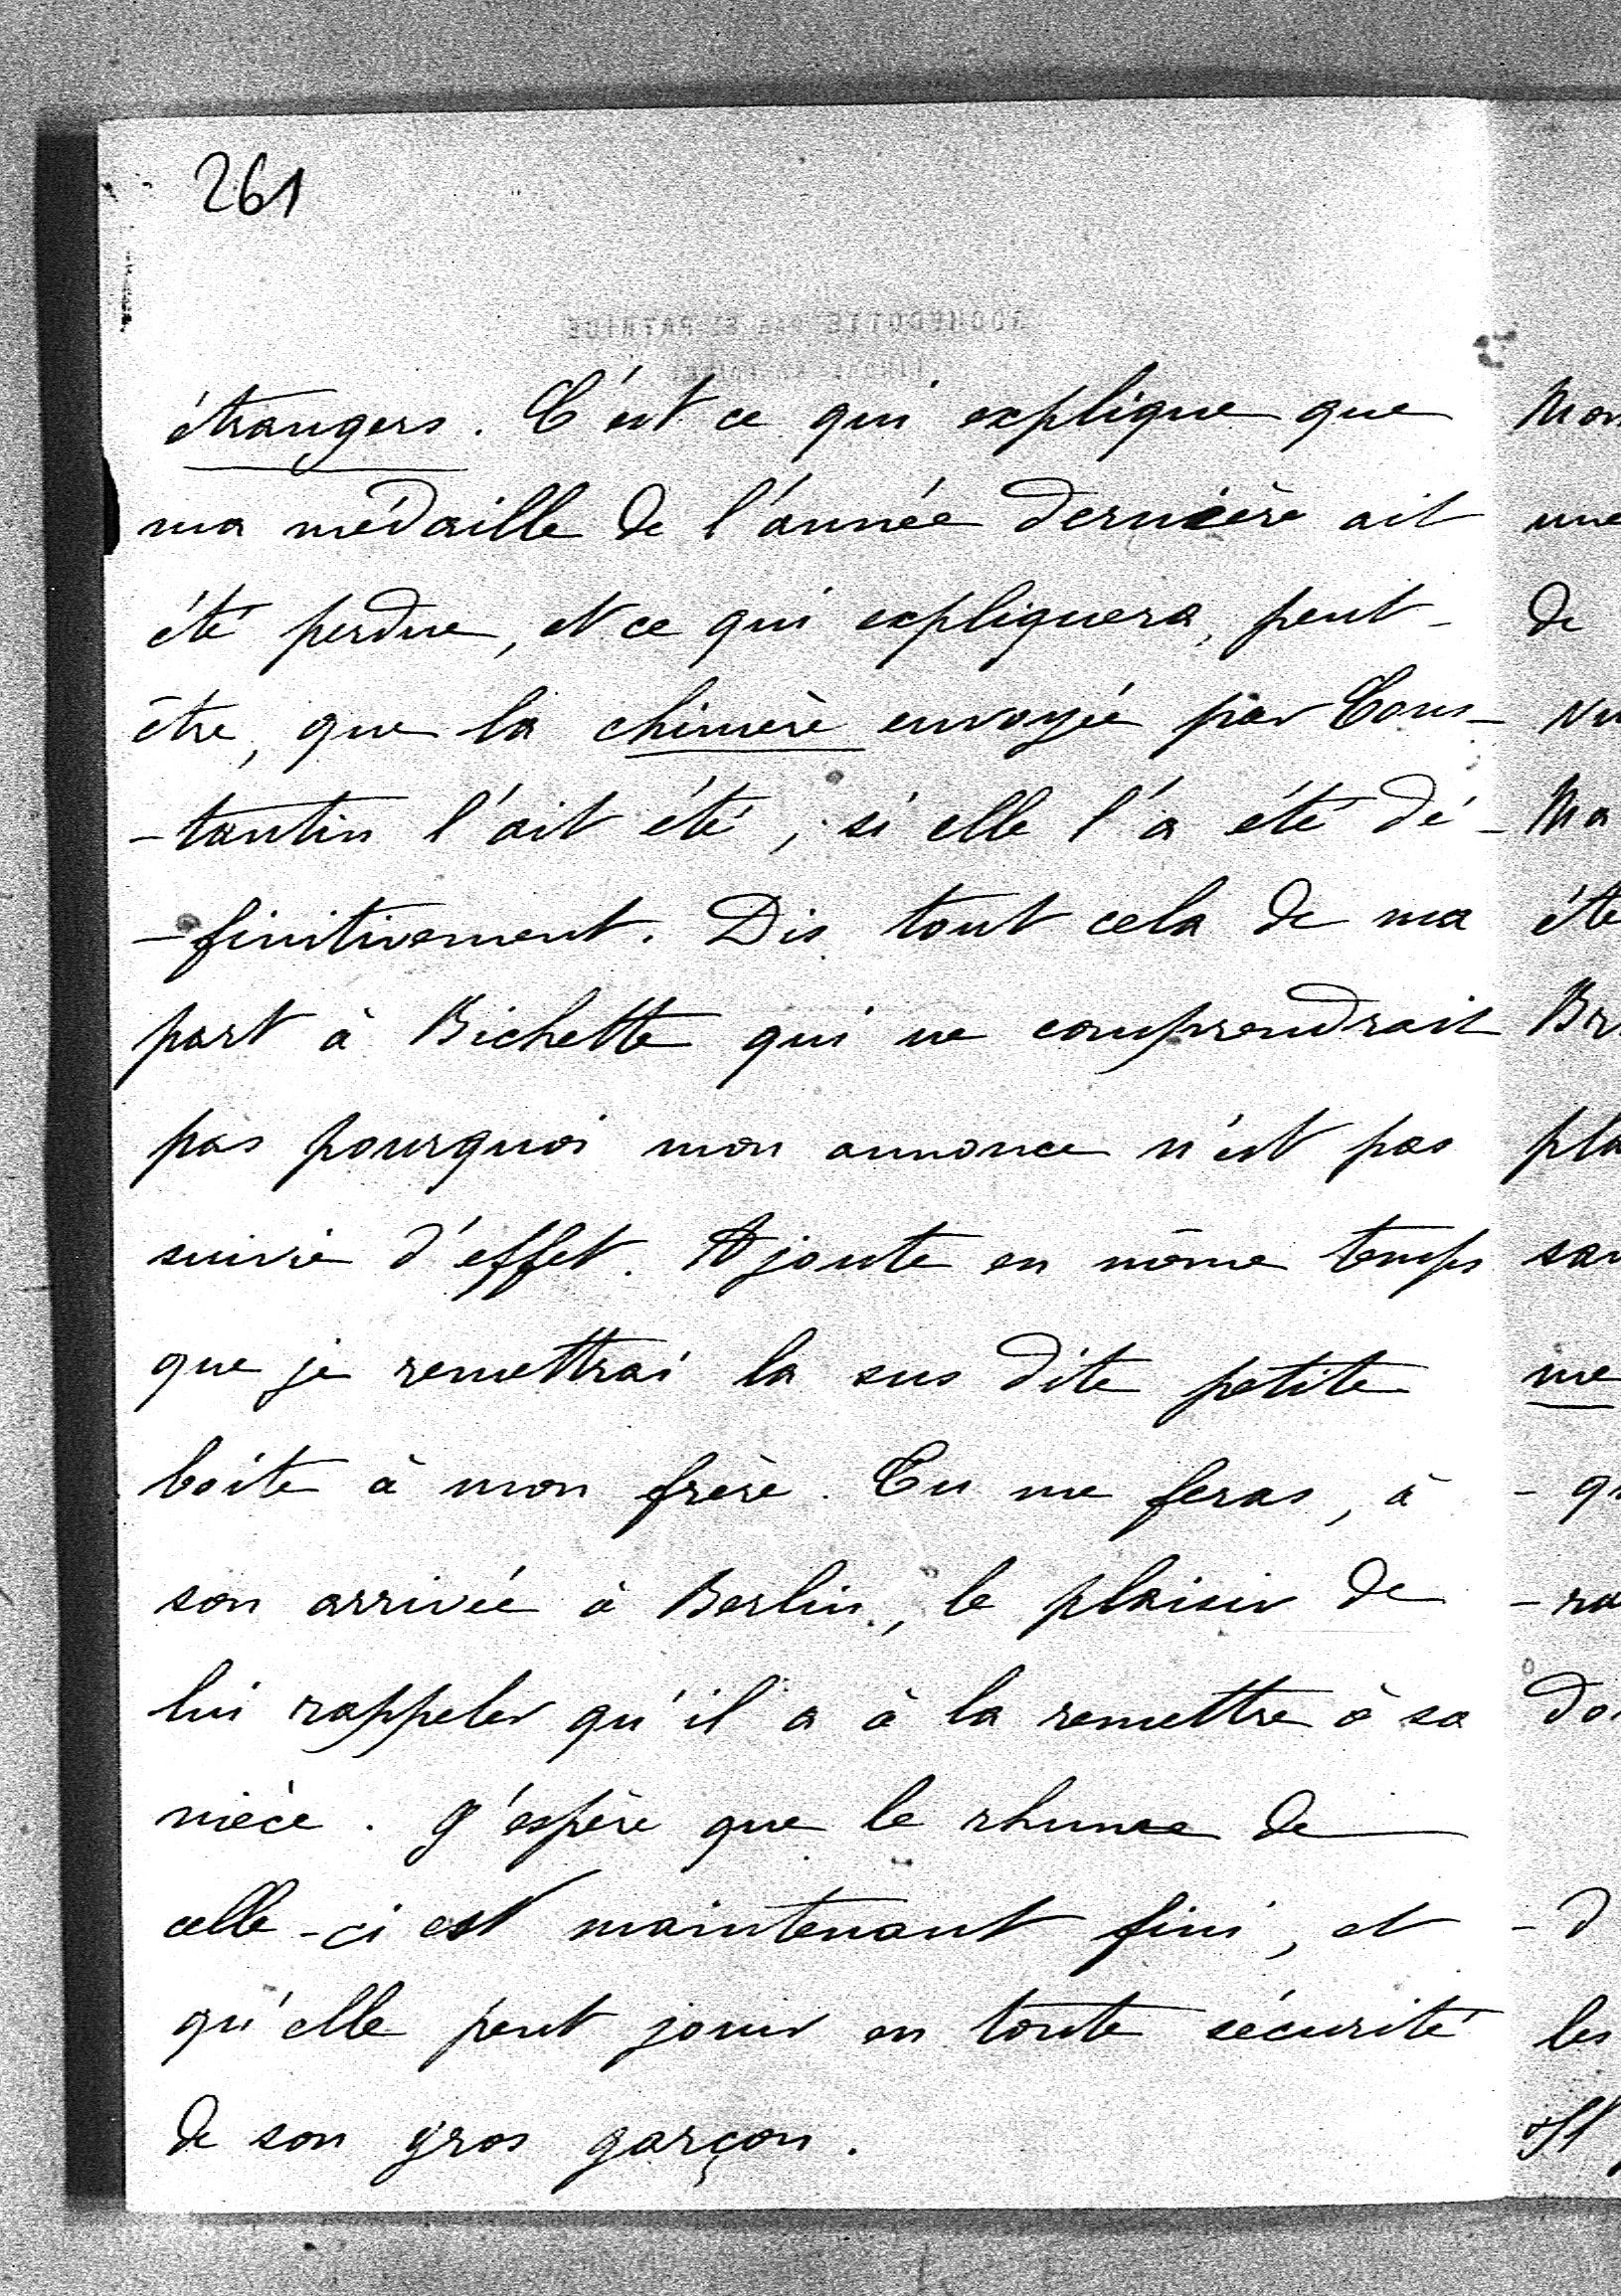 261
étrangers. C'est ce qui explique que
ma médaille de l'année dernière ait
été perdue, et ce qui expliquera, peut-
être, que la chimère envoyée par Cons-
-tantin l'ait été, si elle l'a été dé-
-finitivement. Dis tout cela de ma
part à Bichette qui ne comprendrait
pas pourquoi mon annonce n'est pas
suivie d'effet. Ajoute en même temps
que je remettrai la sus dite petite
boîte à mon frère. Tu me feras, à
son arrivée à Berlin, le plaisir de
lui rappeler qu'il a à la remettre à sa
nièce. J'espère que le rhume de
celle-ci est maintenant fini, et
qu'elle peut jouir en toute sécurité
de son gros garçon.